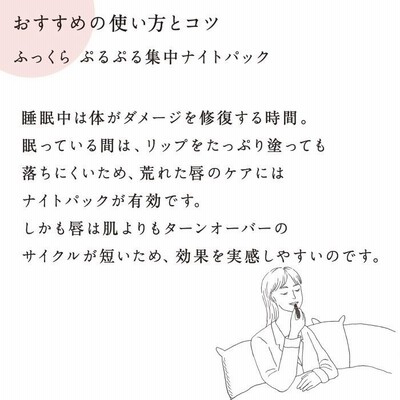 おすすめの使い方とコツ
ふっくら ぷるぷる集中ナイトパック
睡眠中は体がダメージを修復する時間。
眠っている間は、リップをたっぷり塗っても
落ちにくいため、荒れた唇のケアには
ナイトパックが有効です。
しかも唇は肌よりもターンオーバーの
サイクルが短いため、効果を実感しやすいのです。